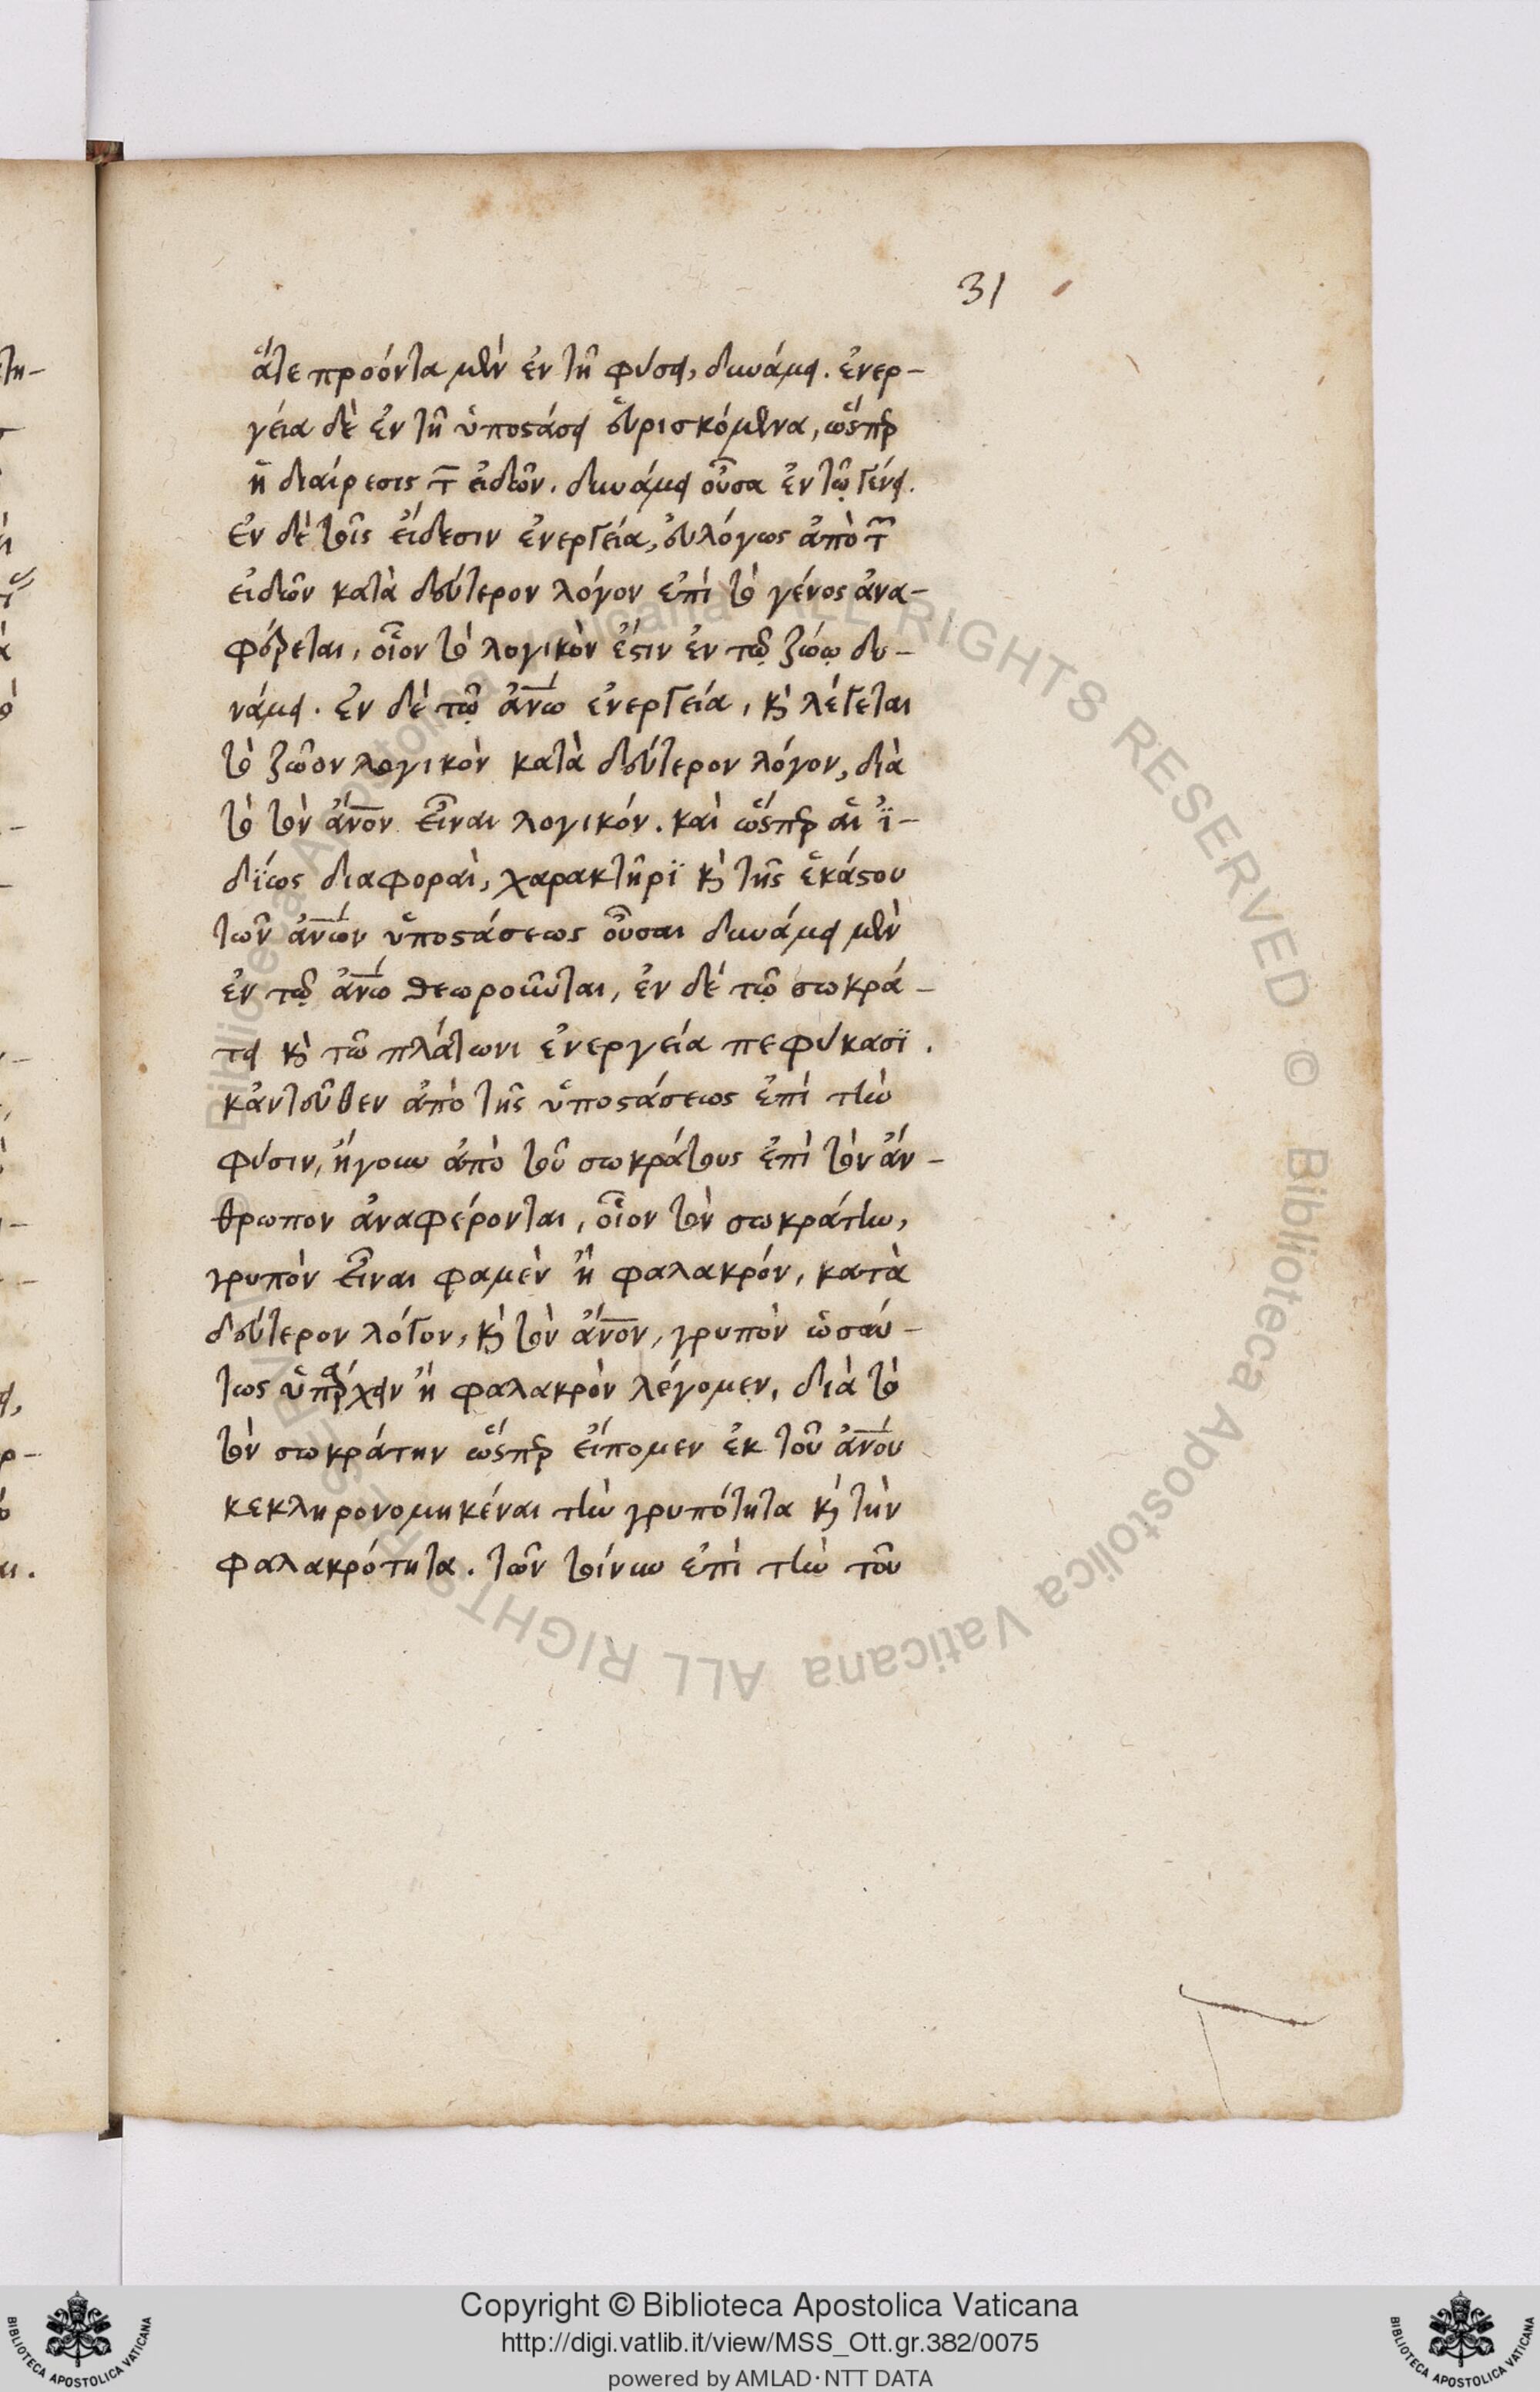 31
ἅτε προόντα μὲν ἐν τῇ φύσει, δυνάμει. ἐνερ-
γεία δὲ ἐν τῇ ὑποστάσει εὑρισκόμενα, ὥσπερ
ἡ διαίρεσις τῶν εἰδῶν. δυνάμει οὖσα ἐν τῷ γένει.
ἐν δὲ τοῖς εἴδεσιν ἐνεργεία, εὐλόγως ἀπὸ τῶν
εἰδῶν κατὰ δεύτερον λόγον ἐπὶ τὸ γένος ἀνα-
φέρεται, οἷον τὸ λογικὸν ἔστιν ἐν τῷ ζώῳ δυ-
νάμει. ἐν δὲ τῷ ἀνω ἐνεργεία, κὶ λέγεται
τὸ ζῶον λογικὸν κατὰ δεύτερον λόγον, διὰ
τὸ τὸν ἄνον εἶναι λογικόν. καὶ ὥσπερ αἱ ἰ-
δίως διαφοραὶ, χαρακτῆρϊ κὶ τῆς ἑκάστου
τῶν ἀνων ὑποστάσεως οὖσαι δυνάμει μὲν
ἐν τῷ ἀνω θεωροῦνται, ἐν δὲ τῷ σωκρά-
τει κὶ τῶ πλάτωνι ἐνεργεία πεφύκασϊ.
κἀντεῦθεν ἀπὸ τῆς ὑποστάσεως ἐπὶ τὴν
φύσιν, ἤγουν ἀπὸ τοῦ σωκράτους ἐπὶ τὸν ἄν-
θρωπον ἀναφέρονται, οἷον τὸν σωκράτην,
γρυπὸν εἶναι φαμὲν ἢ φαλακρόν, κατὰ
δεύτερον λόγον, κὶ τὸν ἄνον, γρυπὸν ὡσαύ-
τως ὑπάρχειν ἢ φαλακρὸν λέγομεν, διὰ τὸ
τὸν σωκράτην ὥσπερ εἴπομεν ἐκ τοῦ ἀνου
κεκληρονομηκέναι τὴν γρυπότητα κὶ τὴν
φαλακρότητα. τῶν τοίνυν ἐπὶ τὴν τοῦ
Copyright © Biblioteca Apostolica Vaticana
http://digi.vatlib.it/view/MSS_Ott.gr.382/0075
powered by AMLAD·NTT DATA